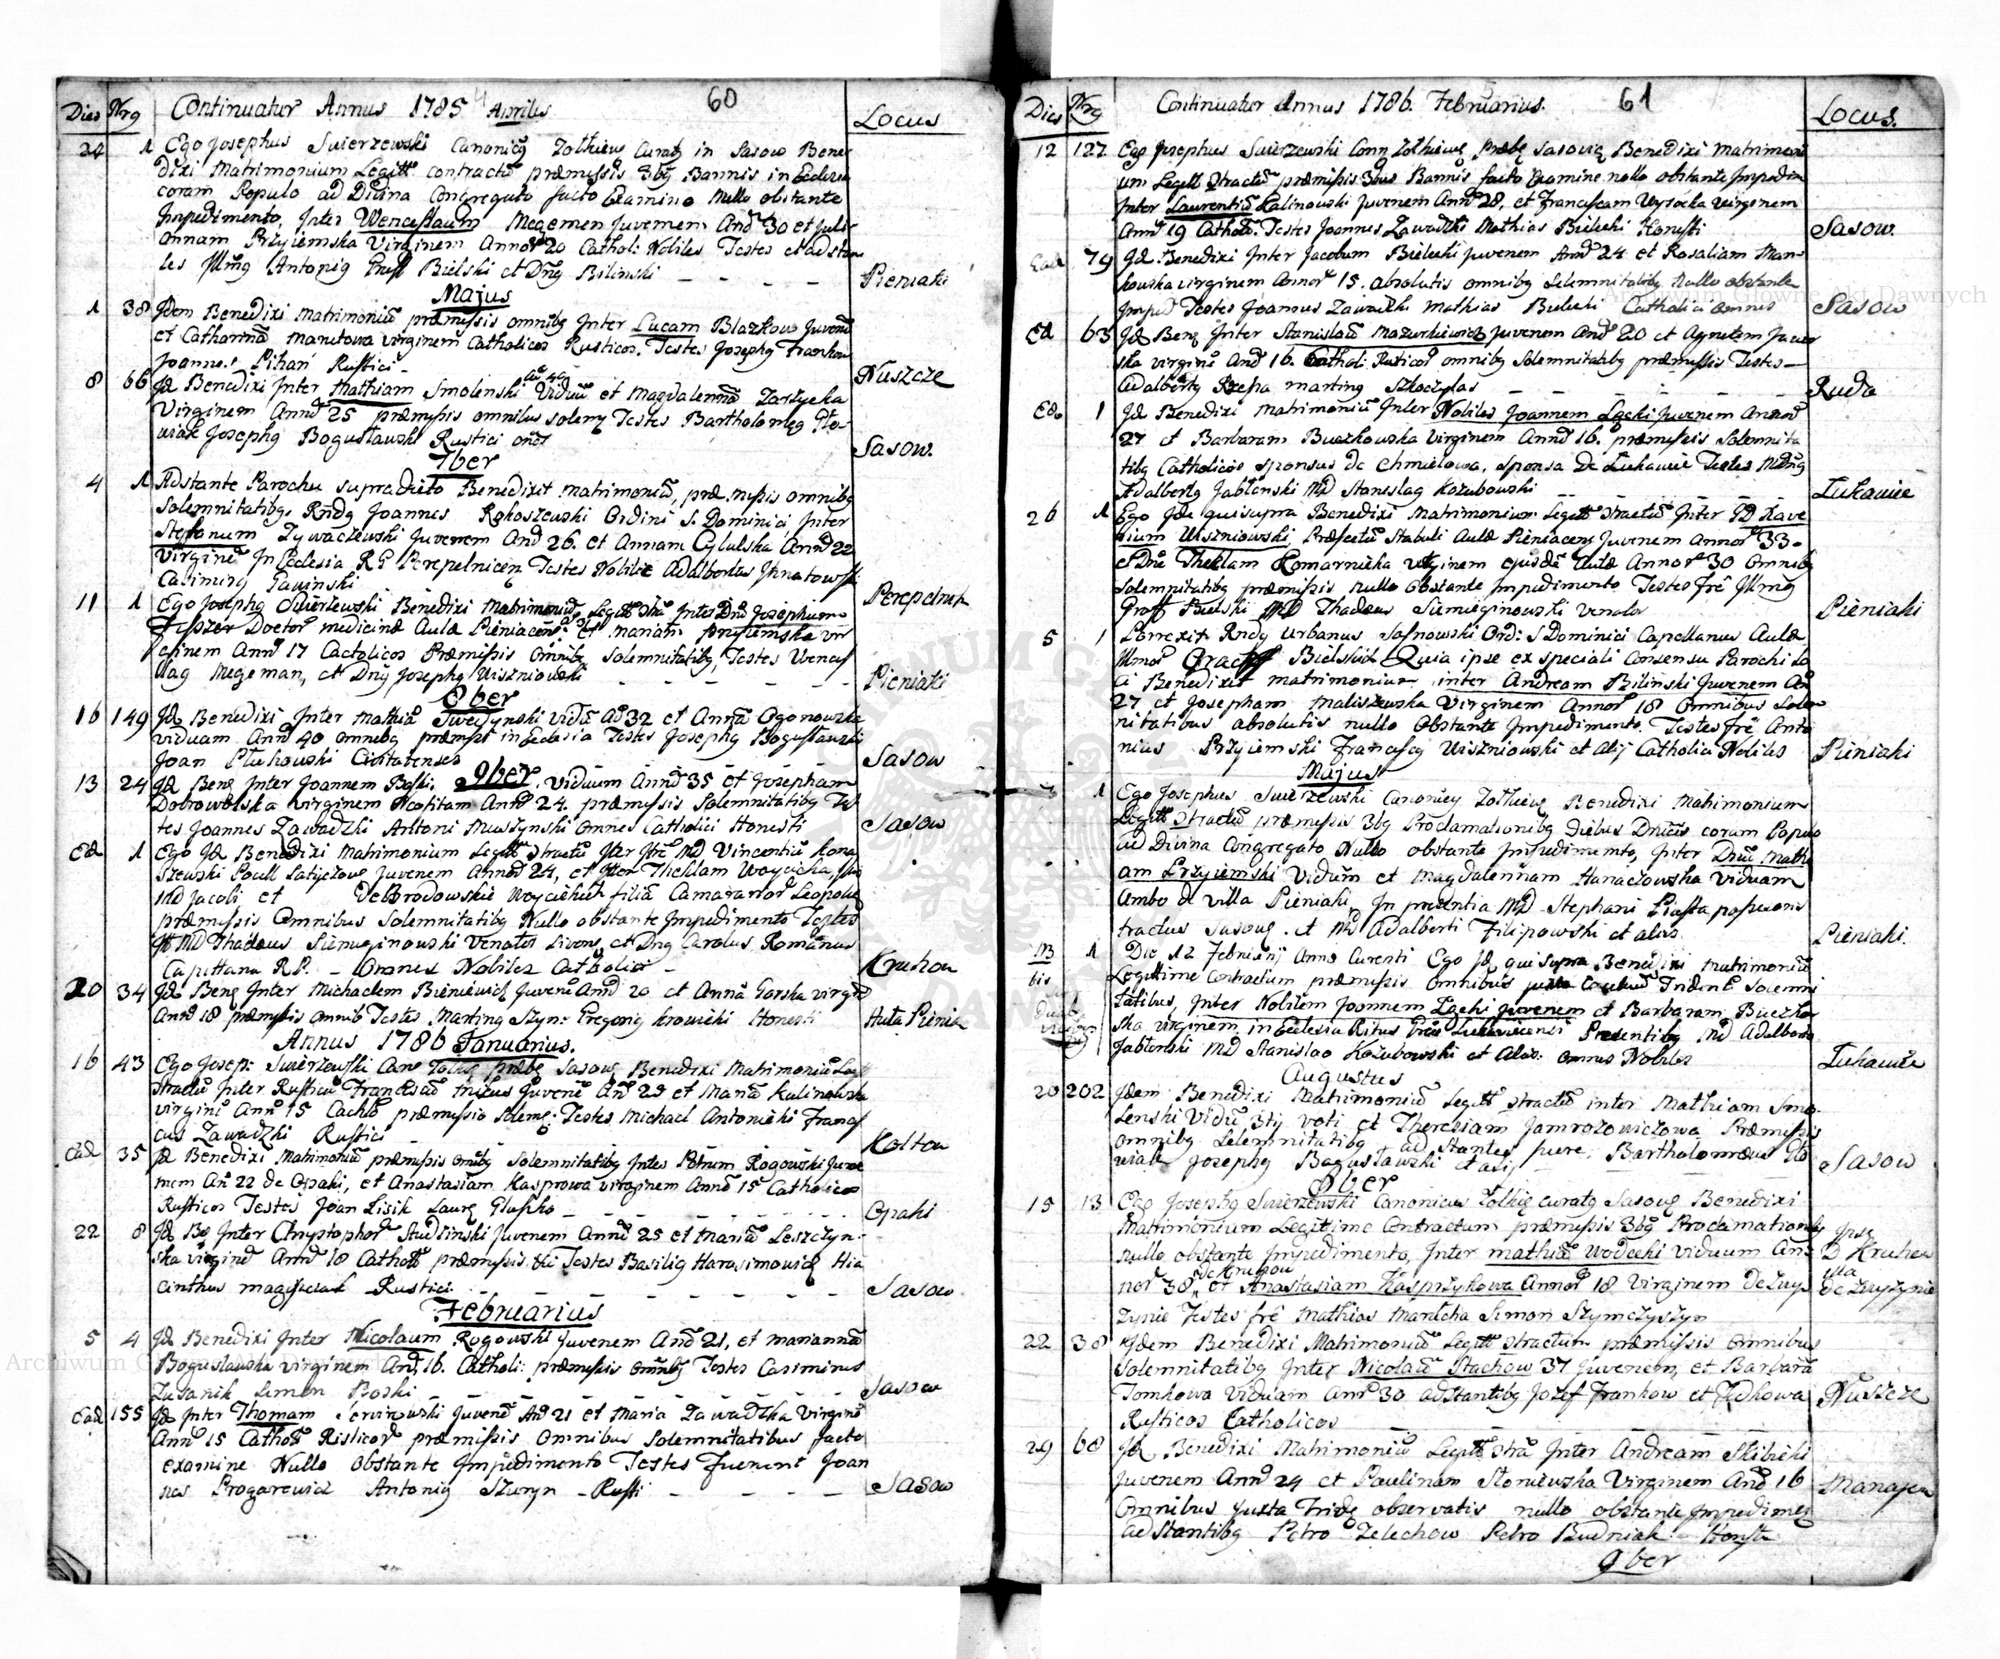 Dies Nrg Continuatur Annus 1785 4 Aprilis 60 Locus
24 1 Ego Josephus Swierzewski Canonicg Zolkiew Curatg in Sasow Bene
dixi Matrimonium Legitt contractu præmissis 3bg Bannis in Ecclesia
coram Populo ad Divina Congregato facto Examine Nullo obstante
Impedimento, Inter Wenceslaum Megemen Juvenem Anõ 30 et Juli
annam Przyiemska Virginem Annor 20 Cathol: Nobiles Testes et adstan
tes Illmg Antonig Graff Bielski et Dng Bilinski Pieniaki
Majus
1 38 Idem Benedixi Matrimoniu præmissis omnibg Inter Lucam Blazkow Juvenē
et Catharinā Manitowa virginem Catholicos Rusticos. Testes Josephg Frankow
Joannes Lihan Rustici Nuszcze
8 66 Id Benedixi Inter Mathiam Smolenski Viduū et Magdalennā Zarzycka
Virginem Annō 25 præmissis omnibus solemg Testes Bartholomeg Glo-
wiak Josephg Boguslawski Rustici Sasow.
7ber
4 1 Adstante Parocho supradicto Benedixit matrimoniū, præmissis omnibg
Solemnitatibg, Rndg Joannes Rokoszewski Ordini S. Dominici Inter
Stephanum Zywaczewski Juvenem Anō 26. et Annam Cybulska Annō 22
Virginē In Ecclesia RG Perepelniceng Testes Nobiles Adalbertus Ihnatowski
Casimirg Gawinski
11 1 Ego Josephg Swierzewski Benedixi Matrimoniū Legitt Inter Dnū Josephum
Doctor medicinæ Aulæ Pieniacens: et Mariam Przyiemska vir
ginem Annō 17 Cactolicos Præmissis Omnibg Solemnitatibg, Testes Wences
lag Megeman, et Dng Josephg Wiszniowski Pieniaki
8ber
16 149 Id Benedixi Inter Mathiā viduū Aō 32 et Annā Ogonowska
viduam Annō 40 omnibg præmiss in Ecclesia Testes Josephg Boguslawski
Joan Pluhowski Civitatenses Sasow
9ber
13 24 Id Beng Inter Joannem viduum Annō 35 et Josepham
Dobrowolska virginem Neofitam Annō 24. præmissis Solemnitatibg Tes
tes Joannes Zawadzki Antoni Muszynski omnes Catholici Honesti Sasow
Ed 1 Ego Id Benedixi Matrimonium Legitt Inter MD Vincentiū Kona
szewski Juvenem Annō 24, et Inter Theklam Woycicka
MD Jacobi et De Brodowskie Woycickich filiā Camararior Leopolien
præmissis Omnibus Solemnitatibg Nullo obstante Impedimento Testes
MD Thadæus Siemiginowski Venator et Dng Carolus Romanus
Capellana R.P. Omnes Nobiles Catholici Kruhow
20 34 Id Beng Inter Michaelem Bieniewicz Juvenē Annō 20 et Annā Gorska virginē
Annō 18 præmissis omnib Testes Marting Szyn: Gregorig Krowicki Honesti Huta Pienia
Annus 1786 Januarius.
16 43 Ego Joseph: Swierzewski Can Zolkig præbg Sasovg Benedixi Matrimoniū Legi
Inter Rusticū Franciscū Juvenē Anō 23 et Mariā Kulinowska
virginē Annō 15 Cathō præmissis Solemg: Testes Michael Antonicki Francis
cus Zawadzki Rustici Koltow
Ead 35 Id Benedixi Matrimoniū præmissis omibg Solemnitatibg Inter Petrum Rogowski Juve
nem Anō 22 de Opaki, et Anastasiam Kasprowa virginem Annō 15 Catholicos
Rusticos Testes Joan Lisik Laurg Opaki
22 8 Id Bg Inter Chrystophor Studzinski Juvenem Annō 25 et Mariā Leszczyn-
ska virginē Annō 18 Catholō præmissis Testes Basilig Harasimowicz Hia
cinthus Rustici Sasow
Februarius
5 4 Id Benedixi Inter Nicolaum Rogowski Juvenem Annō 21, et Mariannā
Boguslawska virginem Annō 16. Catholi: præmissis omnibg Testes Casimirus
Simon Boski Sasow
Ead 155 Id Inter Thomam Juvenē Anō 21 et Maria Zawadzka Virginē
Annō 15 Catholō Risticor præmissis Omnibus Solemnitatibus facto
examine Nullo obstante Impedimento Testes Fuerunt Joan
nes Progarewicz Antonig Rusti Sasow
Dies Nrg Continuatur Annus 1786. Februarius. 61 Locus.
12 127 Ego Josephus Swierzewski Cann Zolkiewg Præbg Sasovig Benedixi Matrimoni
um Legitt præmissis 3bus Bannis facto Examine nullo obstante Impedim
Inter Laurentiū Kalinowski Juvenem Annō 28. et Franciscam Wysocka virginem
Annō 19 Catholi: Testes Joannes Zawadzki Mathias Bielecki Honesti Sasow.
Ead 79 Id: Benedixi Inter Jacobum Bielecki Juvenem Annō 24 et Rosaliam Man-
kowska virginem Annor 15. absolutis omnibg Solemnitatibg Nullo obstante
Imped Testes Joannes Zawadzki Mathias Bielecki Catholici omnes Sasow
Ed 63 Id Beng Inter Stanislaū Mazurkiewicz Juvenem Annō 20 et Agnetem Jawor
ska virginē Annō 16. Catholi: Rusticos omnibg Solemnitatibg præmissis Testes
Adalbertg Rzepa Marting Ruda
Ed 1 Id Benedixi Matrimoniū Inter Nobiles Joannem Lacki Juvenem Annorō
27 et Barbaram Buczkowska Virginem Annō 16. præmissis Solemnita
tibg Catholicos sponsus de Chmielowa, sponsa De Lukawie Testes MDng
Adalbertg Jablonski MD Stanislag Kozubowski Lukawie
26 1 Ego Idē quisupra Benedixi Matrimonium Legitt Inter GD Xave
rium Wiszniowski, Præfectū Stabuli Aulæ Pieniaceng Juvenem Annor 33.
et Dnē Theklam Komarnicka virginem ejusdē Aulæ Annor 30 omnibg
Solemnitatibg præmissis nullo obstante Impedimento Testes frē Illmg
Graff Bielski MD Thadæus Siemieginowski Venator Pieniaki
5 1 Rndg Urbanus Sasnowski Ord: S Dominici Capellanus Aulæ
Illmor Graff Bielskich Quia ipse ex speciali Consensu Parochi lo
ci Benedixit matrimonium inter Andream Bilinski Juvenem An
27 et Josepham Maliszewska Virginem Annor 18 Omnibus Solem
nitatibus absolutis nullo Obstante Impedimento. Testes frē Anto
nius Przyiemski Franciscg Wiszniowski et alij Catholici Nobiles Pieniaki
Majus
1 Ego Josephus Swierzewski Canonicg Zolkiewg Benedixi Matrimonium
Legitt præmissis 3bg Proclamationibg diebus Dnicis coram Populo
ad Divina Congregato Nullo obstante Impedimento, Inter Dnū Mathi
am Przyiemski Viduum et Magdalennam Hanaczowska Viduam
Ambo de villa Pieniaki, In præsentia MD Stephani Piasta possesoris
tractus Sasovg. et MD Adalberti Filipowski et alios Pieniaki.
13 1 Die 12 Februarij Anno Curenti Ego Id qui supra Benedixi matrimoniū
bis Legittime Contractum præmissis Omnibus juxta Trident Solemni
tatibus, Inter Nobilem Joannem Lacki juvenem et Barbaram Buczkow
ska virginem in Ecclesia Ritus Græci Lukaviecensi Præsentibg MD Adalberto
Jablonski MD Stanislao Kozubowski et Alios: omnes Nobiles Lukawie
Augustus
20 202 Idem Benedixi Matrimoniū Legitt inter Mathiam Smo
lenski Viduū 3tij voti et Theresiam Jamrozowiczowa Præmissis
omnibg Solemnitatibg ad Stantes fuere, Bartholomæus Glo
wiak Josephg Boguslawski et alij Sasow
8ber
15 13 Ego Josephg Swierzewski Canonicus Zolkig curatg Sasovg Benedixi
Matrimonium Legittime Contractum præmissis 3bg Proclamationibg
nullo obstante Impedimento, Inter Mathiā Wodecki viduum An
nor 38 de Kruhow et Anastasiam Kasprzykowa Annor 18 Virginem de Zwy
zynie Testes frē Mathias Mantcha Simon Szymczyszyn
Ipse D Kruhow illa de Zwyzynie
22 38 Idem Benedixi Matrimoniū Legitt præmissis Omnibus
Solemnitatibg Inter Nicolaū Stachow 37 juvenem, et Barbarā
Tomkowa Viduam Annr 30 adstantibg Jozef Frankow et
Rusticos Catholicos Nuszcze
29 68 Id Benedixi Matrimoniū Legitt Inter Andream Skibicki
Juvenem Annō 24 et Paulinam Sloniewska Virginem Annō 16
Omnibus juxta observatis nullo obstante Impedimeg
adstantibg Petro Zelechow Petro Budniak
9ber
Archiwum Główne Akt Dawnych